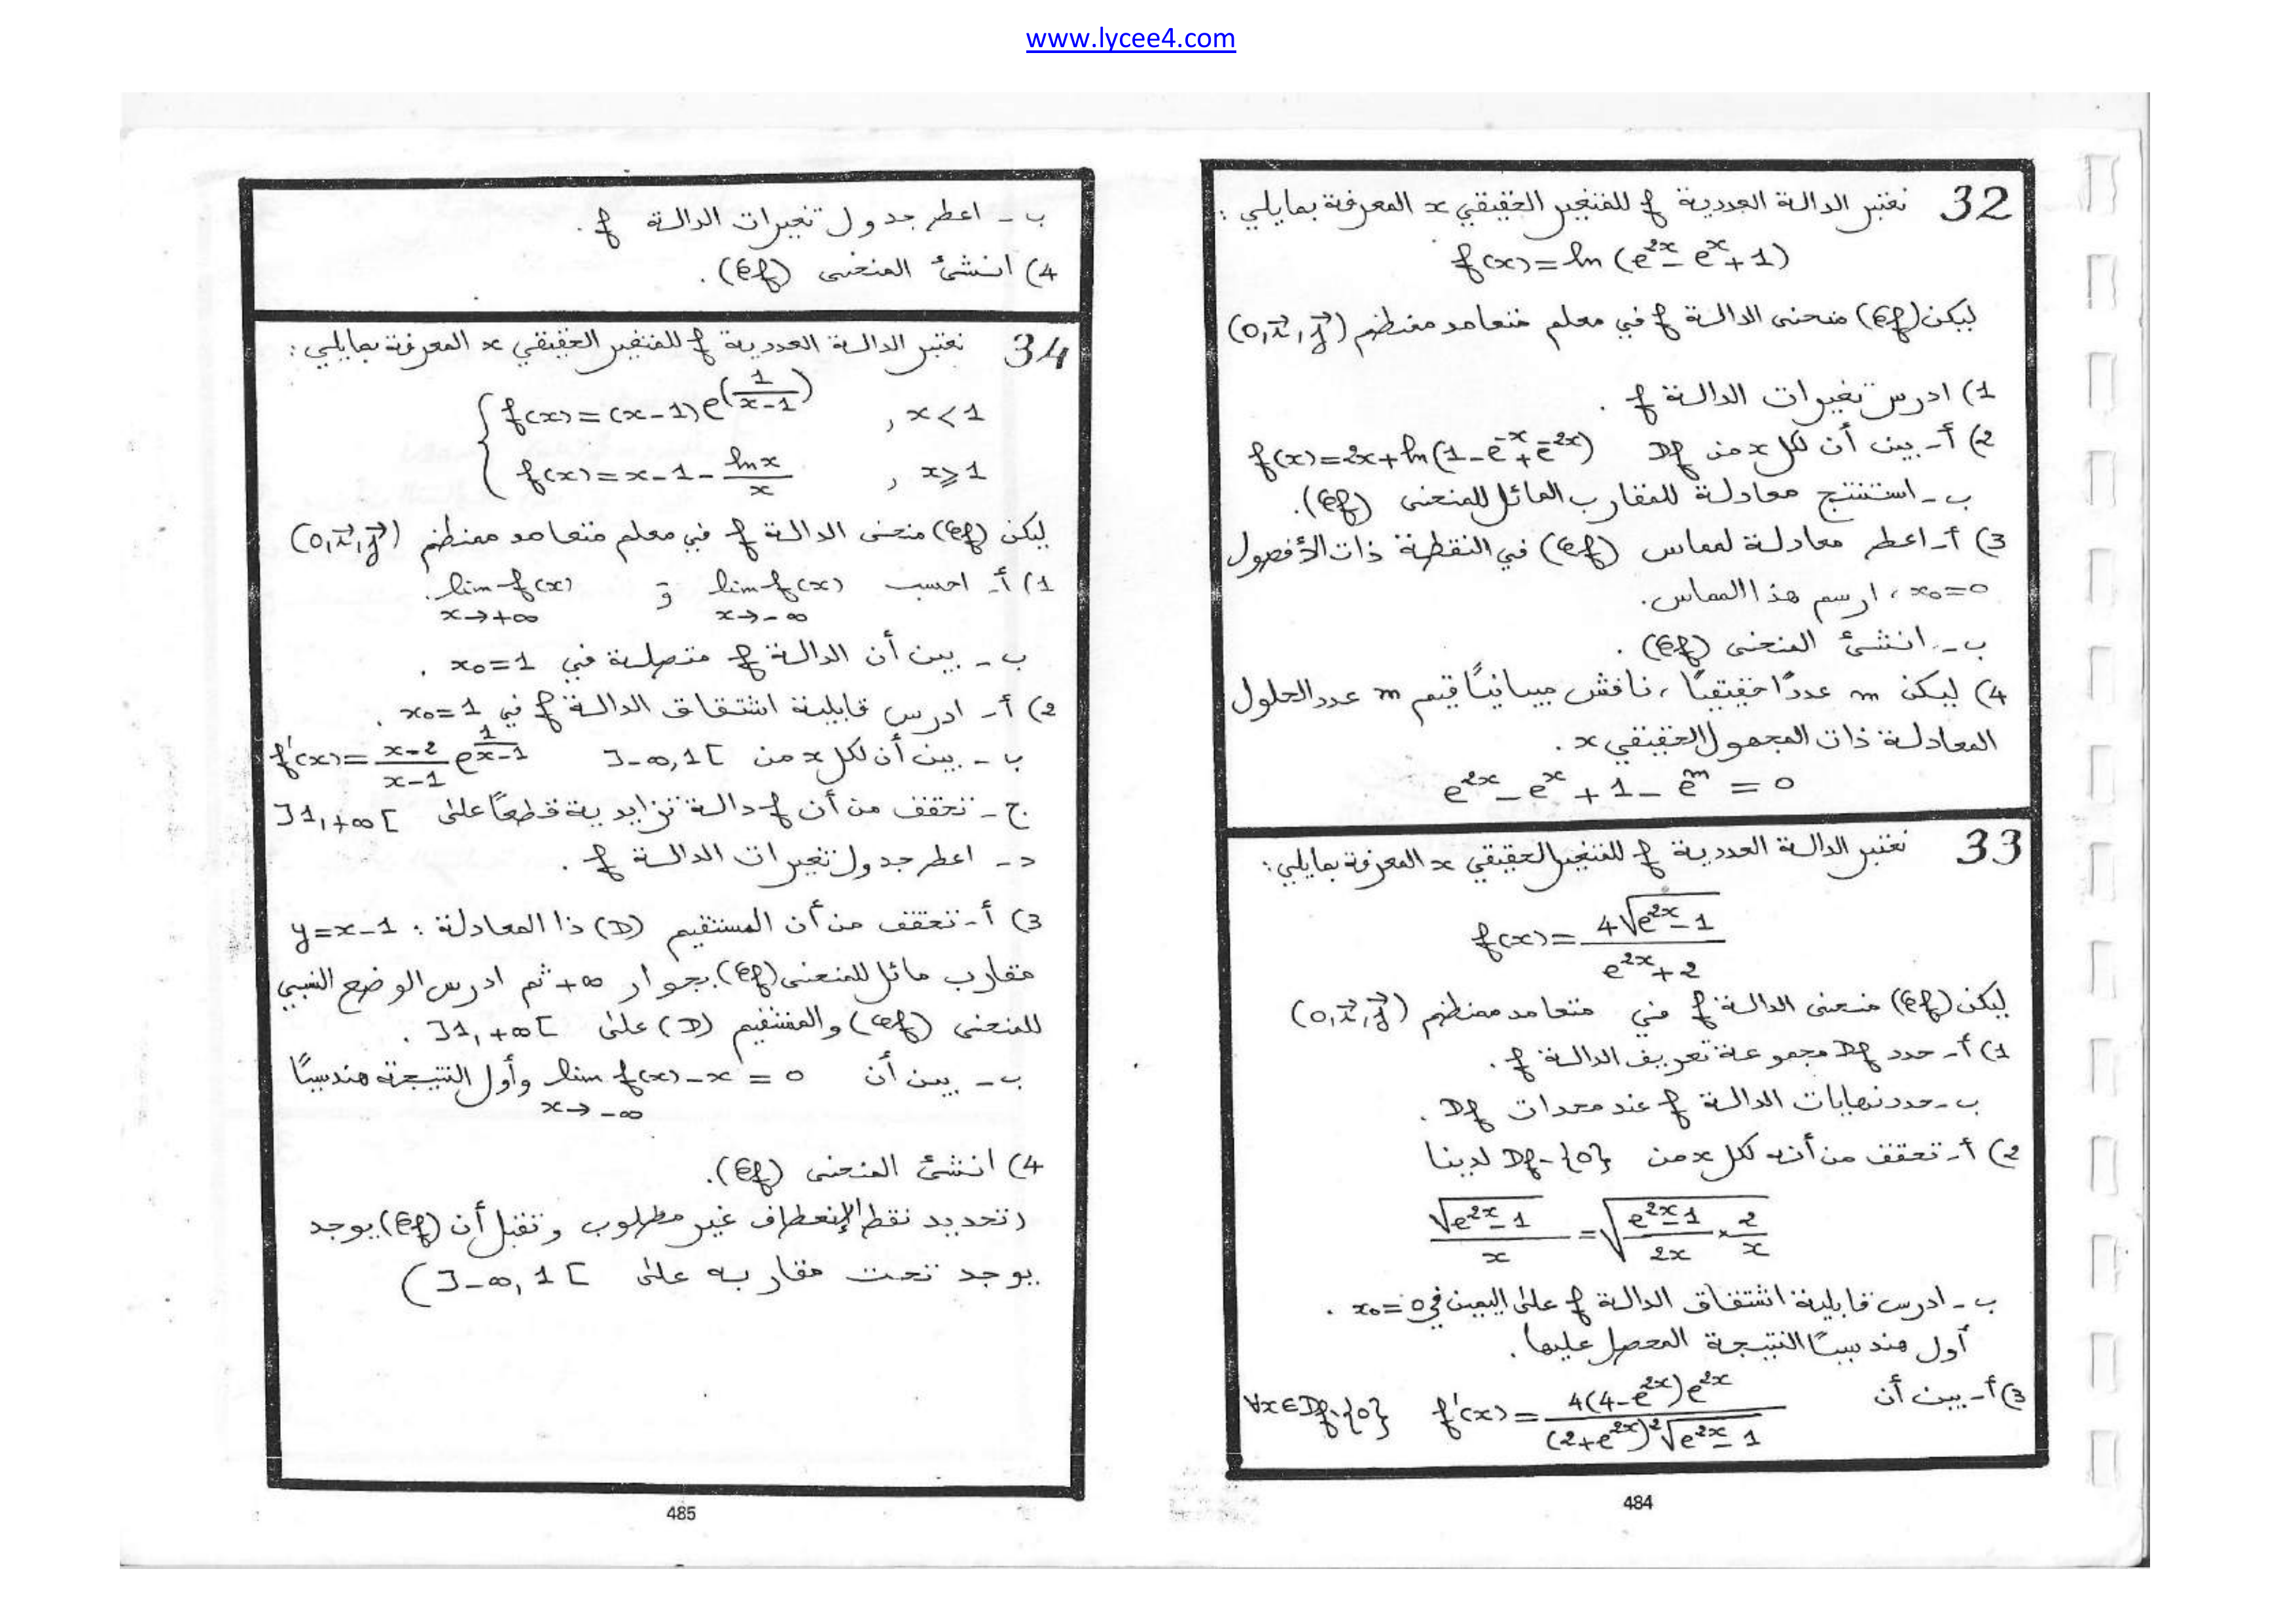 www.lycee4.com
32 نعتبر الدالة العددية f للمتغير الحقيقي x المعرفة بمايلي :
f(x)=ln(e^{2x}-e^{x}+1)
ليكن (Cf) منحنى الدالة f في معلم متعامد ممنظم (0,i⃗,j⃗)
1) ادرس تغيرات الدالة f .
2) أ- بين أن لكل x من Df f(x)=2x+ln(1-e^{-x}+e^{-2x})
ب- استنتج معادلة للمقارب المائل للمنحنى (Cf).
3) أ- اعط معادلة لمماس (Cf) في النقطة ذات الأفصول
x₀=0 ، ارسم هذا المماس.
ب- انشئ المنحنى (Cf) .
4) ليكن m عددًا حقيقيًا ، ناقش مبيانيًا قيم m عدد الحلول
المعادلة ذات المجهول الحقيقي x .
e^{2x}-e^{x}+1-e^{m}=0
33 نعتبر الدالة العددية f للمتغير الحقيقي x المعرفة بمايلي:
f(x)=\frac{4\sqrt{e^{2x}-1}}{e^{2x}+2}
ليكن (Cf) منحنى الدالة f في متعامد ممنظم (0,i⃗,j⃗)
1) أ- حدد Df مجموعة تعريف الدالة f .
ب- حدد نهايات الدالة f عند محدات Df .
2) أ- تحقق من أنه لكل x من Df-{0} لدينا
\frac{\sqrt{e^{2x}-1}}{x}=\sqrt{\frac{e^{2x}-1}{2x}×\frac{2}{x}}
ب- ادرس قابلية اشتقاق الدالة f على اليمين في x₀=0 .
أول هندسيًا النتيجة المحصل عليها .
3) أ- بين أن f'(x)=\frac{4(4-e^{2x})e^{2x}}{(2+e^{2x})^{2}\sqrt{e^{2x}-1}} ∀x∈Df-{0}
484
ب- اعط جدول تغيرات الدالة f .
4) انشئ المنحنى (Cf) .
34 نعتبر الدالة العددية f للمتغير الحقيقي x المعرفة بمايلي :
f(x)=(x-1)e^{(\frac{1}{x-1})} , x<1
f(x)=x-1-\frac{ln x}{x} , x⩾1
ليكن (Cf) منحنى الدالة f في معلم متعامد ممنظم (0,i⃗,j⃗)
1) أ- احسب lim f(x) x→-∞ و lim f(x) x→+∞ .
ب- بين أن الدالة f متصلة في x₀=1 .
2) أ- ادرس قابلية اشتقاق الدالة f في x₀=1 .
ب- بين أن لكل x من ]-∞,1[ f'(x)=\frac{x-2}{x-1}e^{\frac{1}{x-1}}
ج- تحقق من أن f دالة تزايدية قطعًا على ]1,+∞[
د- اعط جدول تغيرات الدالة f .
3) أ- تحقق من أن المستقيم (D) ذا المعادلة : y=x-1
مقارب مائل للمنحنى (Cf) بجوار +∞ ثم ادرس الوضع النسبي
للمنحنى (Cf) والمستقيم (D) على ]1,+∞[ .
ب- بين أن lim f(x)-x=0 x→-∞ وأول النتيجة هندسيًا
4) انشئ المنحنى (Cf).
(تحديد نقط الإنعطاف غير مطلوب ونقبل أن (Cf) يوجد
يوجد تحت مقاربه على ]-∞,1[ )
485